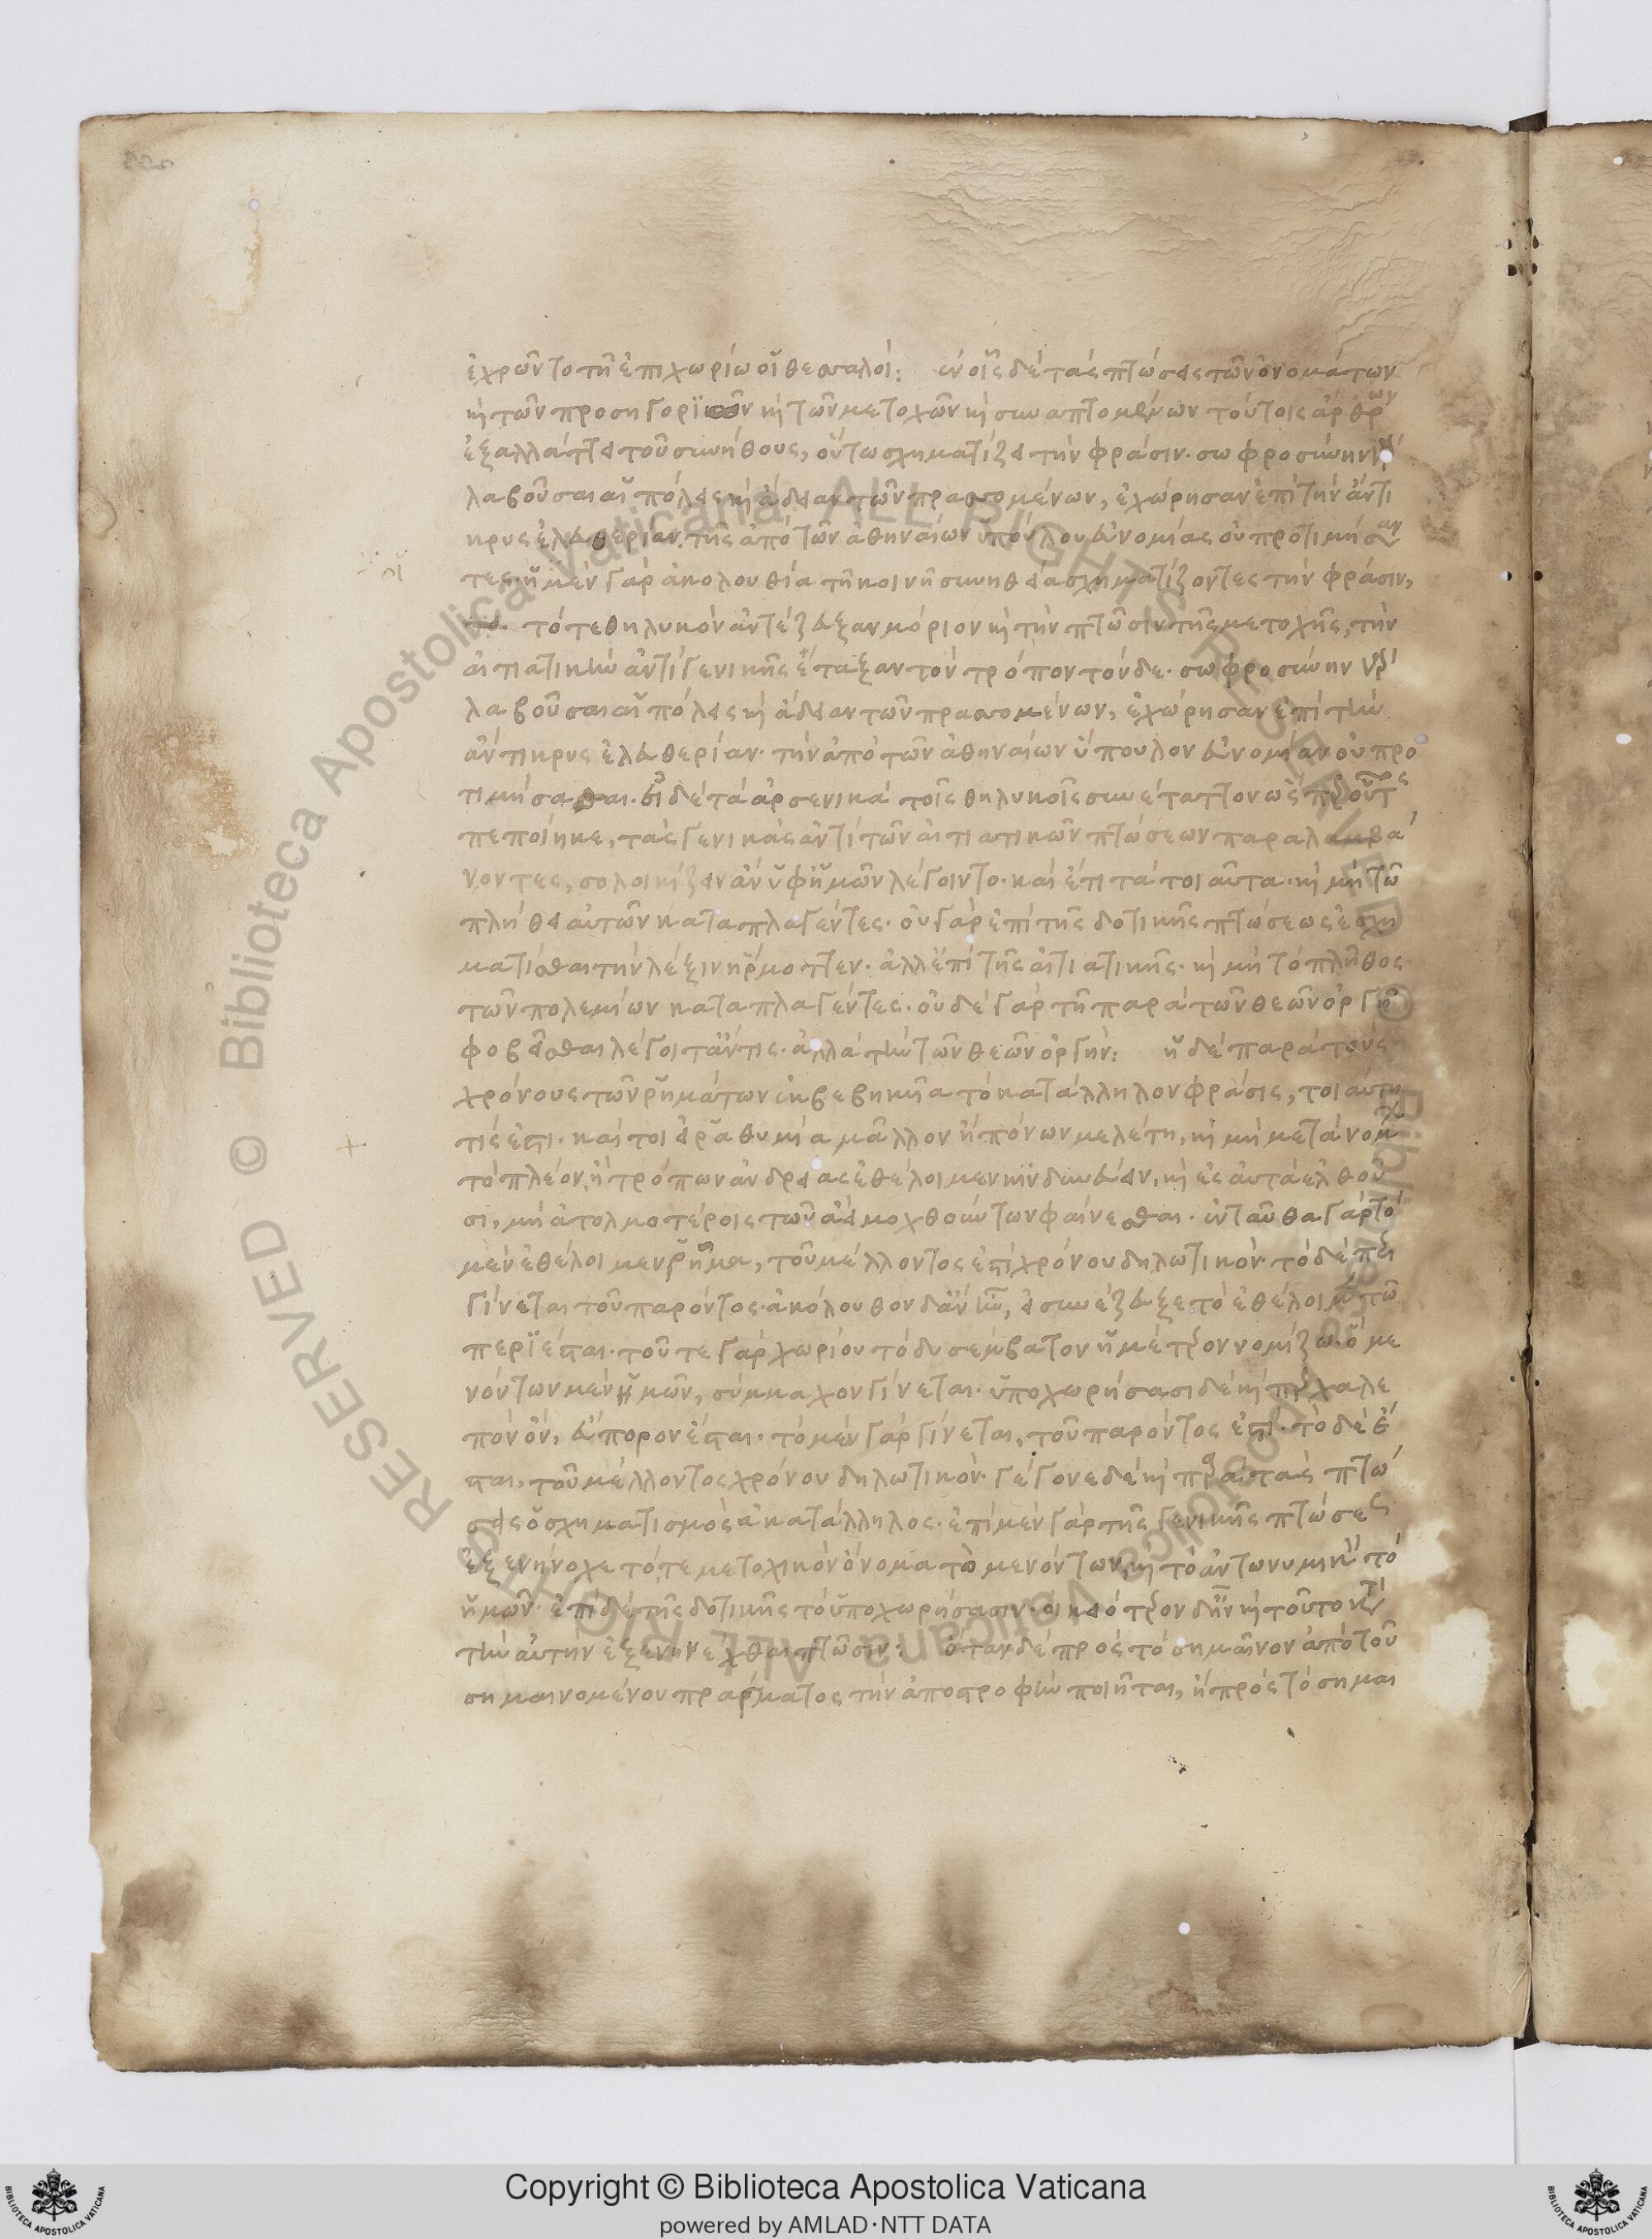 ἐχρῶντο τῆ ἐπιχωρίω οἱ θεσσαλοί: ἐν οἷς δὲ τὰς πτώσεις τῶν ὀνομάτων
καὶ τῶν προσηγορικῶν καὶ τῶν μετοχῶν καὶ συναπτομένων τούτοις ἄρθρων
ἐξαλλάττει τοῦ συνήθους, οὕτω σχηματίζει τὴν φράσιν· σωφροσύνην γὰρ
λαβοῦσαι αἱ πόλεις καὶ ἄδειαν τῶν πρασσομένων, ἐχώρησαν ἐπὶ τὴν ἄντι
κρυς ἐλευθερίαν, τῆς ἀπὸ τῶν ἀθηναίων ὑπούλου εὐνομίας οὐ προτιμήσαν
τες· οἱ μὲν γὰρ ἀκολουθία τῆ κοινῆ συνηθεία σχηματίζοντες τὴν φράσιν,
τό τε θηλυκὸν ἀντέζευξαν μόριον καὶ τὴν πτῶσιν τῆς μετοχῆς, τὴν
αἰτιατικὴν ἀντὶ γενικῆς ἔταξαν τὸν τρόπον τόνδε· σωφροσύνην γὰρ
λαβοῦσαι αἱ πόλεις καὶ ἄδειαν τῶν πρασσομένων, ἐχώρησαν ἐπὶ τὴν
ἄντικρυς ἐλευθερίαν· τὴν ἀπὸ τῶν ἀθηναίων ὕπουλον εὐνομίαν οὐ προ
τιμήσασαι· οἱ δὲ τὰ ἀρσενικὰ τοῖς θηλυκοῖς συνέταττον ὡς
πεποίηκε, τὰς γενικὰς ἀντὶ τῶν αἰτιατικῶν πτώσεων παραλαμβά
νοντες, σολοικίζειν ἂν ὑφ' ἡμῶν λέγοιντο· καὶ ἔτι τὰ τοιαῦτα· καὶ μὴ τῶ
πλήθει αὐτῶν καταπλαγέντες· οὐ γὰρ ἐπὶ τῆς δοτικῆς πτώσεως ἐσχη
ματίσθαι τὴν λέξιν ἥρμοττεν· ἀλλ' ἐπὶ τῆς αἰτιατικῆς· καὶ μὴ τὸ πλῆθος
τῶν πολεμίων καταπλαγέντες· οὐδὲ γὰρ τῆ παρὰ τῶν θεῶν ὀργῆ
φοβεῖσθαι λέγοιτ' ἄν τις· ἀλλὰ τὴν τῶν θεῶν ὀργήν: ἡ δὲ παρὰ τοὺς
χρόνους τῶν ῥημάτων ἐκβεβηκυῖα τὸ κατάλληλον φράσις, τοιαύτη
τίς ἐστι· καίτοι εἰ ῥαθυμία μᾶλλον ἢ πόνων μελέτη, καὶ μὴ μετὰ νόμων
τὸ πλέον, ἢ τρόπων ἀνδρείας ἐθέλοιμεν κινδυνεύειν, καὶ ἐς αὐτὰ ἐλθοῦ
σι, μὴ ἀτολμοτέροις τῶν ἀεὶ μοχθούντων φαίνεσθαι· ἐνταῦθα γὰρ τὸ
μὲν ἐθέλοιμεν ῥῆμα, τοῦ μέλλοντος ἐστὶ χρόνου δηλωτικόν· τὸ δὲ περι
γίνεται τοῦ παρόντος· ἀκόλουθον δ' ἂν ἦν, εἰ συνέζευξε τὸ ἐθέλοιμεν τῶ
περιέσται· τοῦ τε γὰρ χωρίου τὸ δυσέμβατον ἡμέτερον νομίζω· ὃ με
νόντων μὲν ἡμῶν, σύμμαχον γίνεται· ὑποχωρήσασι δὲ καίπερ χαλε
πὸν ὄν, εὔπορον ἔσται· τὸ μὲν γὰρ γίνεται, τοῦ παρόντος ἐστί· τὸ δὲ ἔ
σται, τοῦ μέλλοντος χρόνου δηλωτικόν· γέγονε δὲ καὶ παρὰ τὰς πτώ
σεις ὁ σχηματισμὸς ἀκατάλληλος· ἐπὶ μὲν γὰρ τῆς γενικῆς πτώσεως
ἐξενήνοχε τό τε μετοχικὸν ὄνομα τὸ μενόντων, καὶ τὸ ἀντωνυμικὸν τὸ
ἡμῶν· ἐπὶ δὲ τῆς δοτικῆς τὸ ὑποχωρήσασιν· οἰκειότερον δ' ἦν καὶ τοῦτο κατὰ
τὴν αὐτὴν ἐξενηνέχθαι πτῶσιν: ὅταν δὲ πρὸς τὸ σημαῖνον ἀπὸ τοῦ
σημαινομένου πράγματος τὴν ἀποστροφὴν ποιῆται, ἢ πρὸς τὸ σημαι
Biblioteca Apostolica Vaticana ALL RIGHTS RESERVED ©
Copyright © Biblioteca Apostolica Vaticana
powered by AMLAD·NTT DATA
BIBLIOTECA APOSTOLICA VATICANA
BIBLIOTECA APOSTOLICA VATICANA